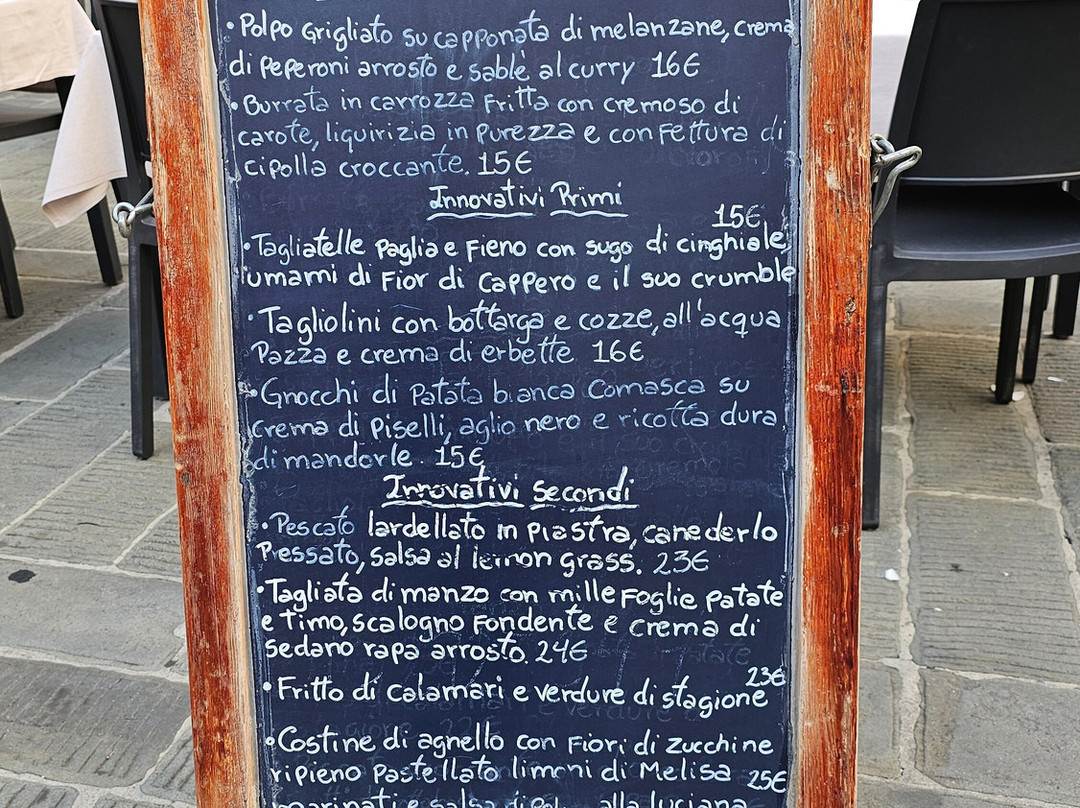 • Polpo Grigliato su capponata di melanzane, crema
di peperoni arrosto e sablè al curry 16€
• Burrata in carrozza Fritta con cremoso di
carote, liquirizia in purezza e confettura di
cipolla croccante. 15€
Innovativi Primi
15€
• Tagliatelle Paglia e Fieno con sugo di cinghiale
umami di Fior di Cappero e il suo crumble
• Tagliolini con bottarga e cozze, all'acqua
Pazza e crema di erbette 16€
• Gnocchi di Patata bianca Comasca su
crema di Piselli, aglio nero e ricotta dura
di mandorle. 15€
Innovativi Secondi
• Pescato lardellato in piastra, canederlo
Pressato, salsa al lemon grass. 23€
• Tagliata di manzo con mille Foglie patate
e Timo, scalogno Fondente e crema di
sedano rapa arrosto. 24€
23€
• Fritto di calamari e verdure di stagione
• Costine di agnello con Fiori di zucchine
ripieno Pastellato limoni di Melisa 25€
marinati e salsa alla luciana